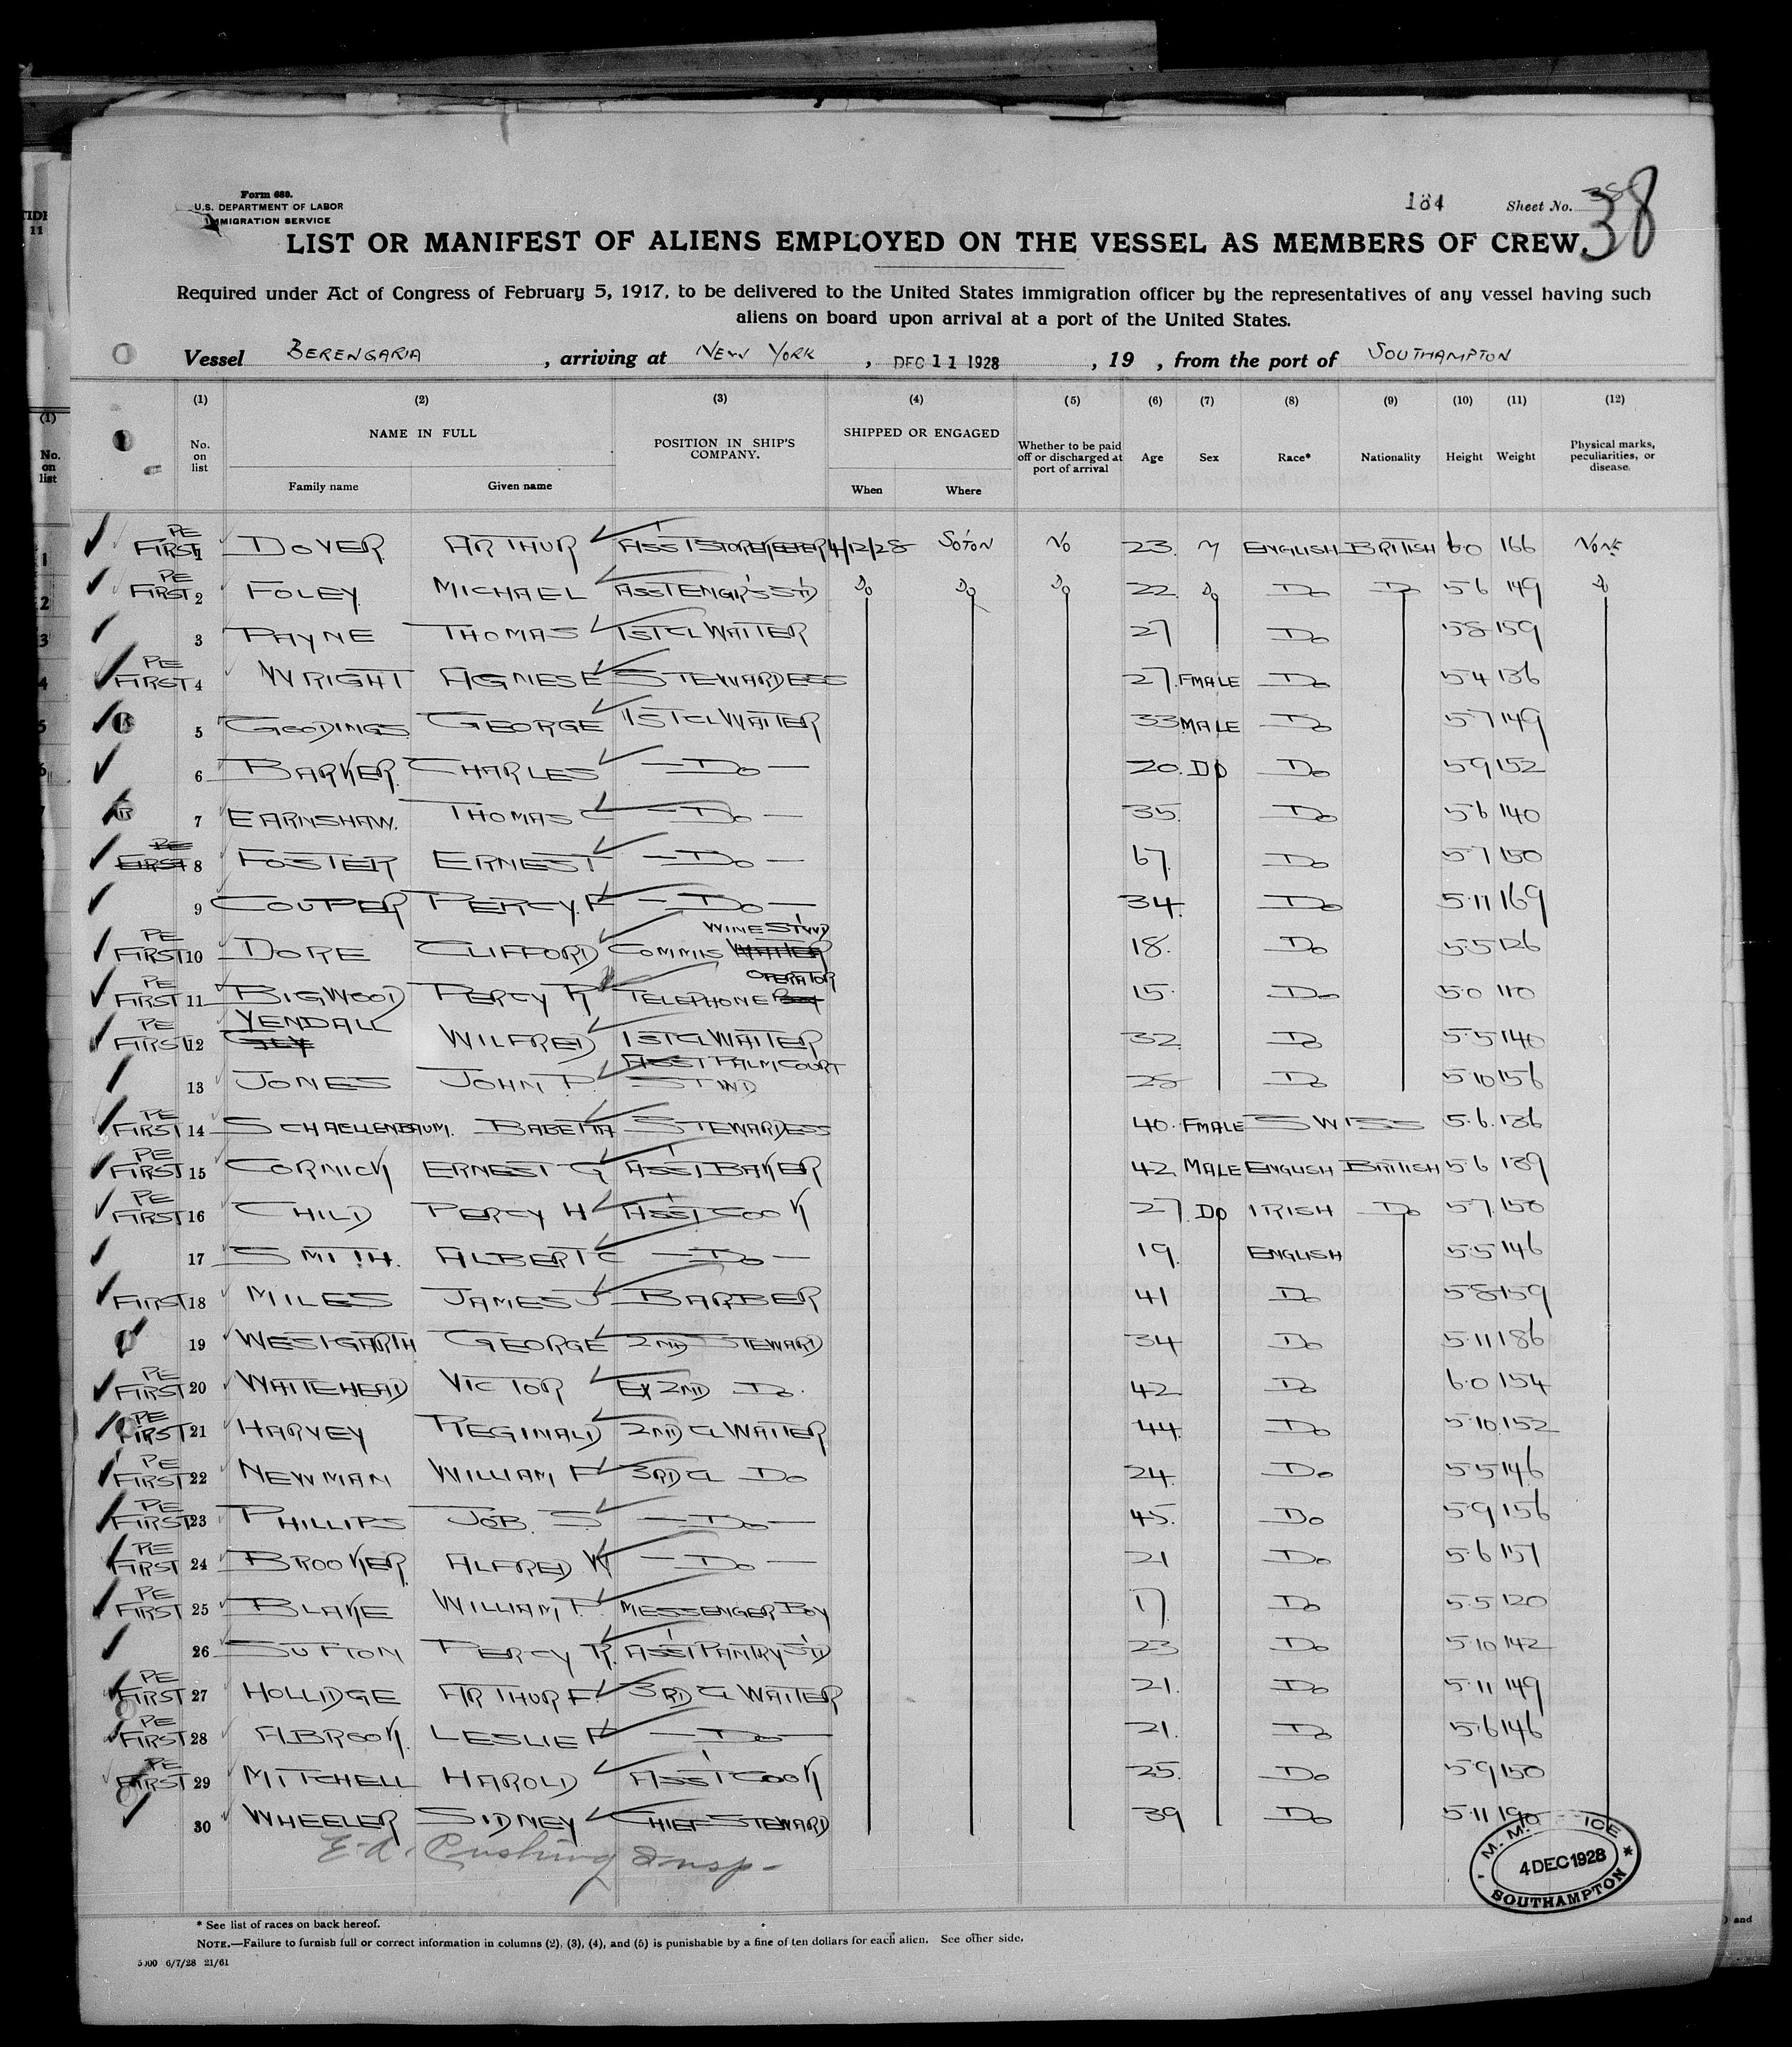 Form 680.
U.S. DEPARTMENT OF LABOR
IMMIGRATION SERVICE
184 Sheet No. 38
LIST OR MANIFEST OF ALIENS EMPLOYED ON THE VESSEL AS MEMBERS OF CREW.
Required under Act of Congress of February 5, 1917, to be delivered to the United States immigration officer by the representatives of any vessel having such
aliens on board upon arrival at a port of the United States.
Vessel BERENGARIA, arriving at NEW YORK, DEC 11 1928, 19 , from the port of SOUTHAMPTON
(1) (2) (3) (4) (5) (6) (7) (8) (9) (10) (11) (12)
No. on list NAME IN FULL Family name Given name POSITION IN SHIP'S COMPANY. SHIPPED OR ENGAGED When Where Whether to be paid off or discharged at port of arrival Age Sex Race* Nationality Height Weight Physical marks, peculiarities, or disease.
PE FIRST 1 DOVER ARTHUR ASS'T STOREKEEPER 4/12/28 SO'TON NO 23 M ENGLISH BRITISH 6.0 166 NONE
PE FIRST 2 FOLEY MICHAEL ASST ENGR'S ST'D Do Do Do 22 Do Do Do 5.6 149 Do
3 PAYNE THOMAS 1ST CL WAITER 27 Do 5.8 159
PE FIRST 4 WRIGHT AGNES E STEWARDESS 27 FMALE Do 5.4 136
5 GOODINGS GEORGE 1ST CL WAITER 33 MALE Do 5.7 149
6 BARKER CHARLES Do 20 DO Do 5.9 152
7 EARNSHAW THOMAS Do 35 Do 5.6 140
PE FIRST 8 FOSTER ERNEST Do 67 Do 5.7 150
9 COUPER PERCY. F Do 34 Do 5.11 169
PE FIRST 10 DORE CLIFFORD COMMIS WAITER WINE ST'WD 18 Do 5.5 126
PE FIRST 11 BIGWOOD PERCY R TELEPHONE BOY OPERATOR 15 Do 5.0 110
PE FIRST 12 YENDALL WILFRED 1ST CL WAITER 32 Do 5.5 140
13 JONES JOHN P. ASST PALM COURT ST'WD 28 Do 5.10 156
PE FIRST 14 SCHAELLENBAUM. BABETTA STEWARDESS 40 FMALE SWISS 5.6 136
PE FIRST 15 CORMICK ERNEST G ASS'T BAKER 42 MALE ENGLISH BRITISH 5.6 139
PE FIRST 16 CHILD PERCY H ASS'T COOK 27 DO IRISH Do 5.7 150
17 SMITH. ALBERT C Do 19 ENGLISH 5.5 146
FIRST 18 MILES JAMES J BARBER 41 Do 5.8 159
19 WESTGARTH GEORGE 2ND STEWARD 34 Do 5.11 186
PE FIRST 20 WHITEHEAD VICTOR EX 2ND Do. 42 Do 6.0 154
PE FIRST 21 HARVEY REGINALD 2ND CL WAITER 44 Do 5.10 152
PE FIRST 22 NEWMAN WILLIAM F 3RD CL Do 24 Do 5.5 146
PE FIRST 23 PHILLIPS JOB. S. Do 45 Do 5.9 156
PE FIRST 24 BROOKER ALFRED W Do 21 Do 5.6 151
PE FIRST 25 BLAKE WILLIAM P. MESSENGER BOY 17 Do 5.5 120
26 SUTTON PERCY R. ASS'T PANTRY ST'D 23 Do 5.10 142
PE FIRST 27 HOLLIDGE ARTHUR F. 3RD CL WAITER 21 Do 5.11 149
PE FIRST 28 ABROOK. LESLIE F Do 21 Do 5.6 146
PE FIRST 29 MITCHELL HAROLD ASS'T COOK 25 Do 5.9 150
30 WHEELER SIDNEY CHIEF STEWARD 39 Do 5.11 190
E.A. Cushing Insp-
M. M. ICE
4 DEC 1928
SOUTHAMPTON
* See list of races on back hereof.
NOTE.—Failure to furnish full or correct information in columns (2), (3), (4), and (5) is punishable by a fine of ten dollars for each alien. See other side.
6/7/28 21/61